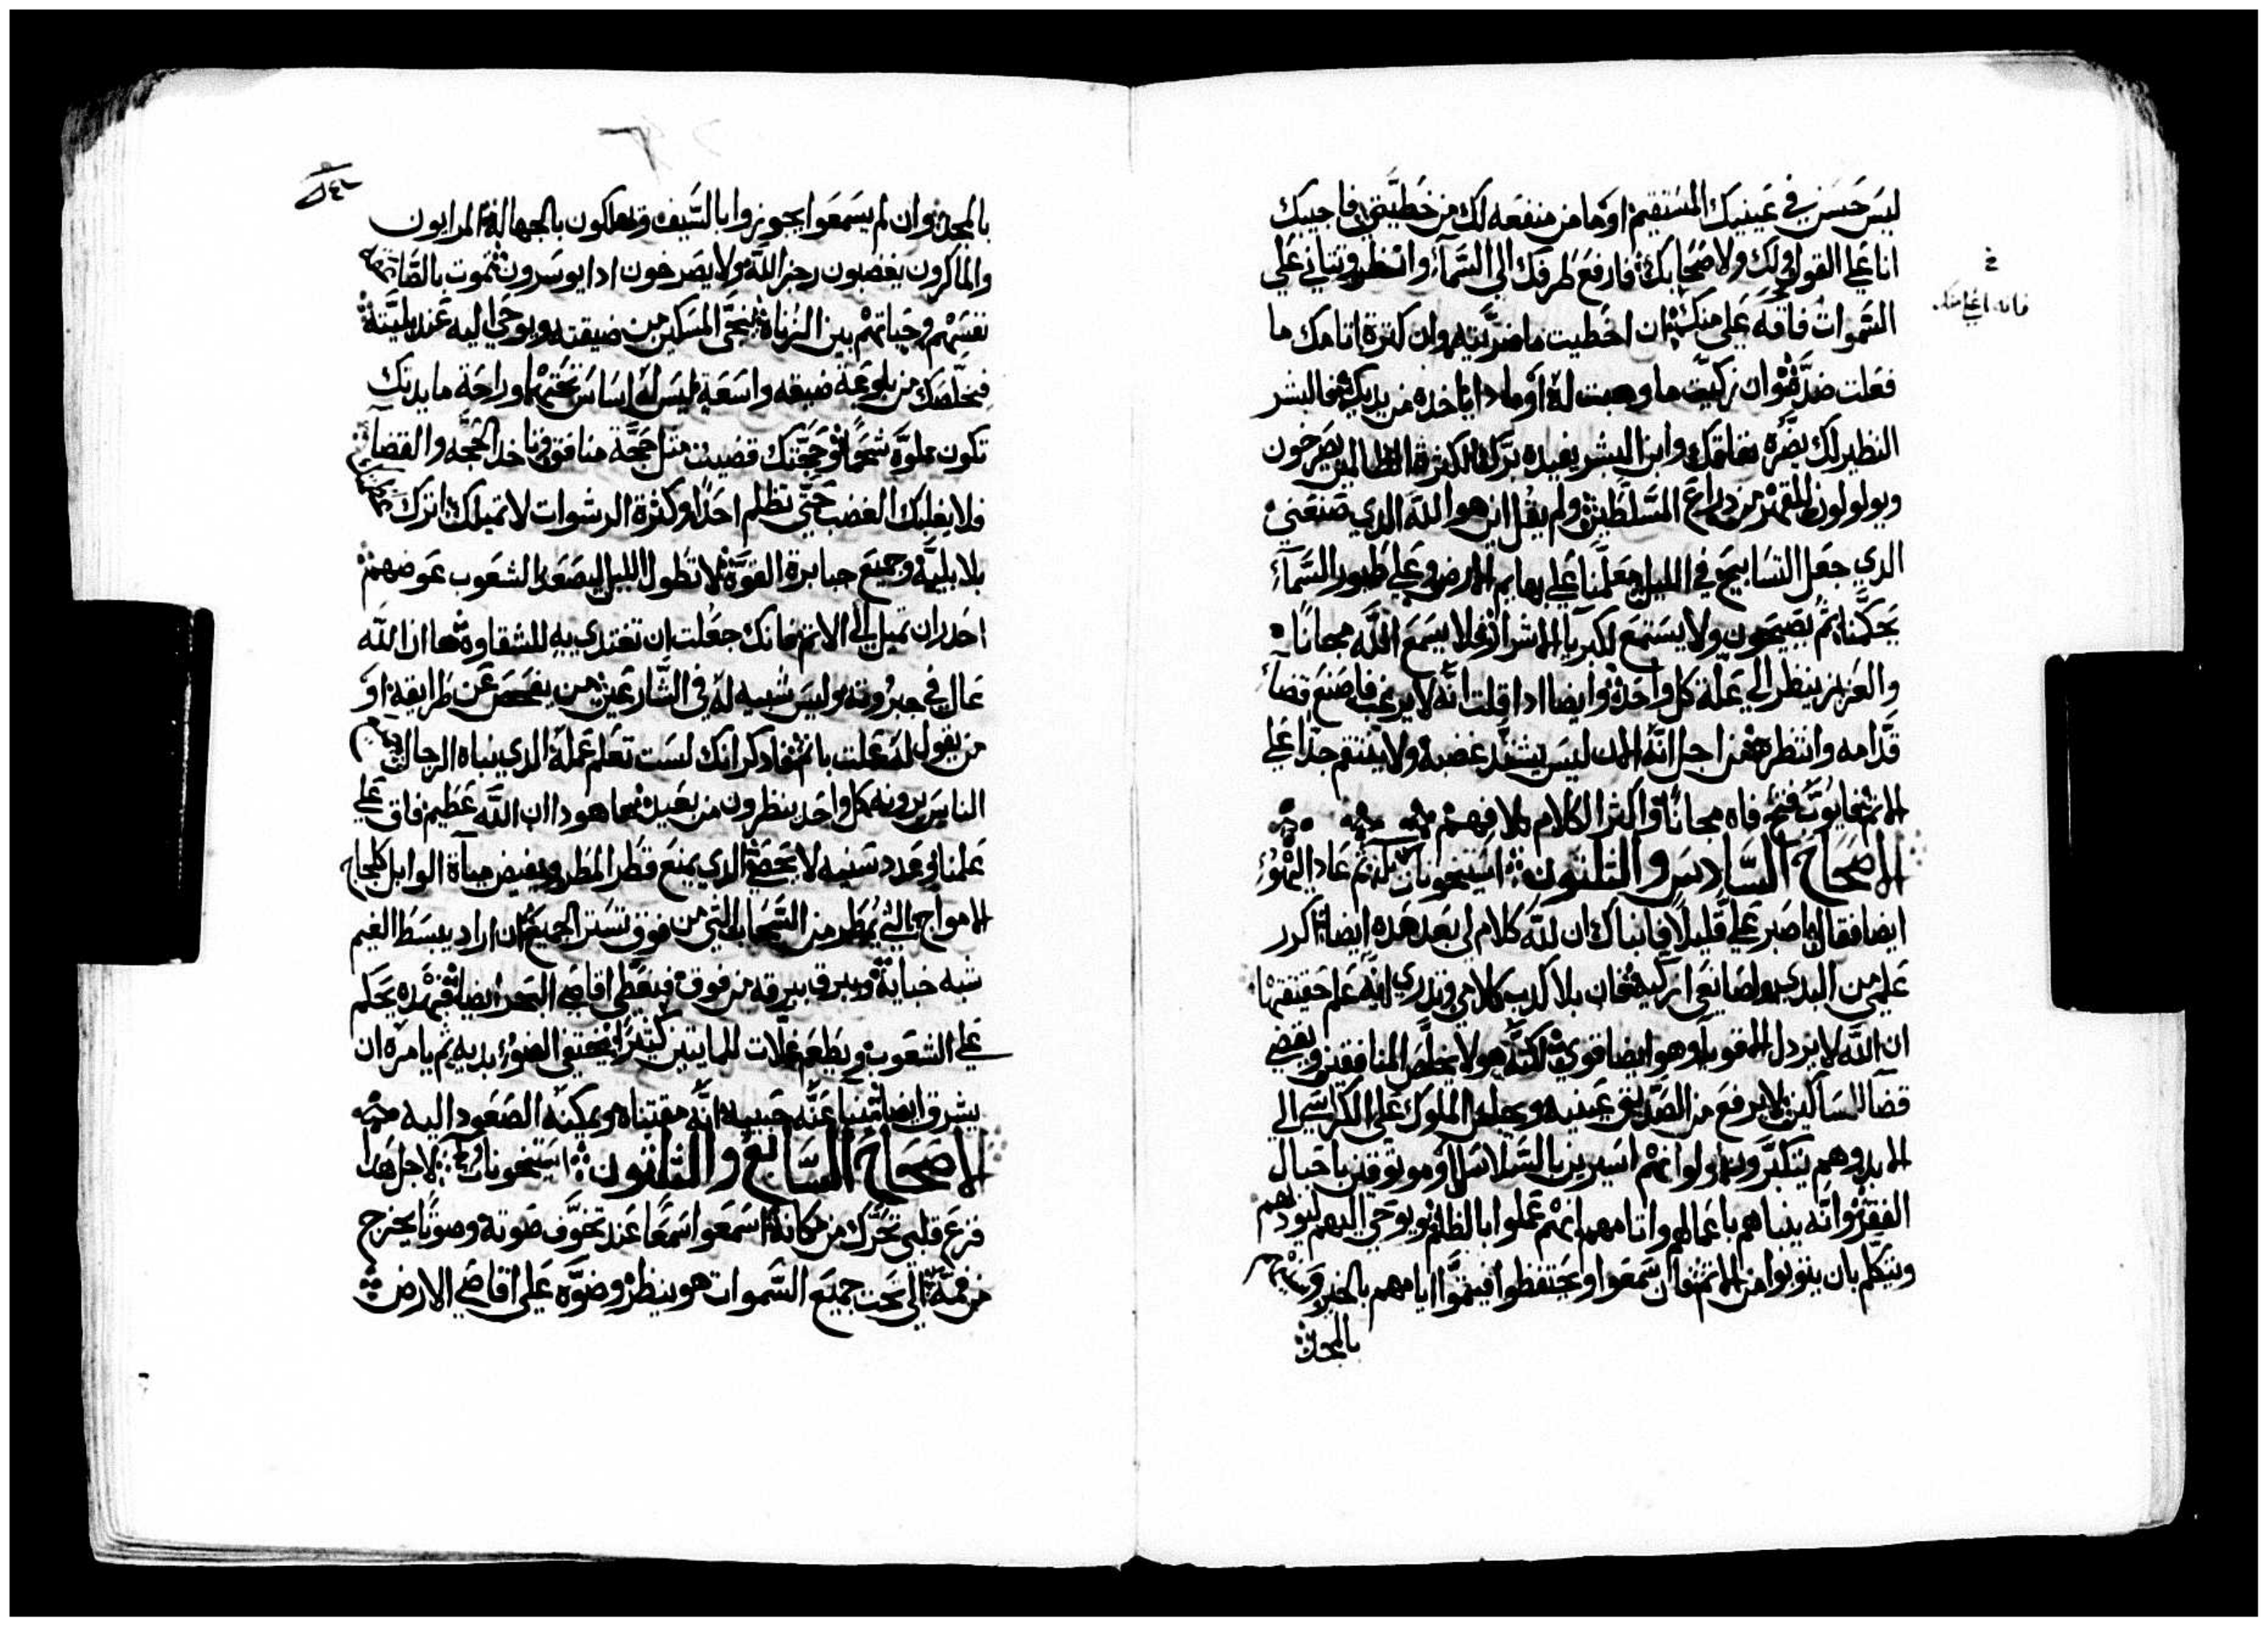 ليس حسن في عينيك المستقيم او ما من منفعه لك من خطيتي فاجيبك
انا علي القول لك ولاصحابك فارفع طرفك الي السمآء وانظر وتباني علي
السموات فانه اعلي منك ان اخطيت ما ضريته وان كثرة اتامك ما
فعلت ضده وان زكيت ما وهبت له او مادا ياخده من يديك فالبشر
النظير لك يضره نفاقك وابن البشر يفيده برك لكثرة الظالمين يصرخون
ويولولون من دراع المسلطين ولم يقل اين هو الله الدي صنعني
الدي جعل التسابيح في الليل يعلمنا علي بهايم الارض وعلي طيور السمآء
يحكمنا ثم يصيحون ولا يستمع لكبريا الاشرار فلا يسمع الله مجانا
والعزيز ينظر الي علة كل واحد وايضا ادا قلت انه لا يرغب فاصنع قضآء
قدامه وانتظره من اجل انه الان ليس يشتد غضبه ولا ينتقم جدا علي
الاتم فايوب فتح فاه مجانا واكثر الكلام بلا فهم
الاصحاح السادس والتلتون استيخونات ثم عاد اليهو
ايضا فقال اصبر علي قليلا فانباك ان لله كلام لي بعد هده ايضا اكرر
علمي من البدي وصانعي ازكيه فان بلا كدب كلامي وتدري انه علم حقيقتها
ان الله لا يردل الاقويا وهو ايضا قوي لكنه هو لا يخلص المنافقين ويقضي
قضآ المساكين لا يرفع من الصديق عينيه ويجلس الملوك علي الكراسي الي
الابد وهم يتكبرون ولو انهم اسيرين بالسلاسل او موتوقين باحبال
الفقر وانه ينباهم باعمالهم واتامهم انهم عملوا بالظلم ويوحي اليهم ليودهم
ويتكلم بان يتوبوا من الاتم فان سمعوا ويحتفظوا فيتموا ايامهم بالخير وسنيهم
بالمجد
فانه اعلي منك
بالمجد وان لم يسمعوا يجوزوا بالسيف ويهلكون بالجهاله المرايون
والماكرون يغصبون رجز الله ولا يصرخون ادا يوسرون تموت بالصاعقه
نفسهم وحياتهم بين الزناة ينجي المسكين من ضيقته ويوحي اليه عند بليته
فيخلصك من بلوعة ضيقه واسعة ليس له اساس تحتها وراحة مايدتك
تكون مملوه شحما وحجتك قضيت متل حجة منافق وتاخد الحجه والقضآء
فلا يغلبك الغضب حتي تظلم احدا وكثرة الرشوات لا تميلك اترك
بلا بلية وجميع جبابرة القوه لا تطول الليل ليصعد الشعوب عوضهم
احدر ان تميل الي الاتم فانك جعلت ان تقتدي به للشقاوه ها ان الله
عال في جبروته وليس شبيه له في الشارعين من يفحص عن طرايقه او
من يقول له عملت باتم فادكر انك لست تعلم عمله الدي ينباه الرجال
الناس يرونه كل واحد ينظرون من بعيد ها هودا ان الله عظيم فاق علي
علمنا وعدد سنيه لا يحصي الدي يمنع قطر المطر ويفيض مياة الوابل كلجاج
الامواج التي يمطر من السحاب التي من فوق تستر الجميع ان اراد يبسط الغيم
شبه خبايته ويبرق ببرقه من فوق فيغطي اقاصي البحر ايضا فبهده يحكم
علي الشعوب ويطعم غلات للمايتين كثيرا يختبي الضوء بيديه ثم يامره ان
يشرق ايضا ينبا عنه حبيبه انه مقتناه ويمكنه الصعود اليه
الاصحاح السابع والتلتون استيخونات لاجل هدا
فزع قلبي تحرك من مكانه اسمعوا سمعا عند تخوف صوته وصوتا يخرج
من فمه الي تحت جميع السموات هو ينظر وضوه علي اقاصي الارض